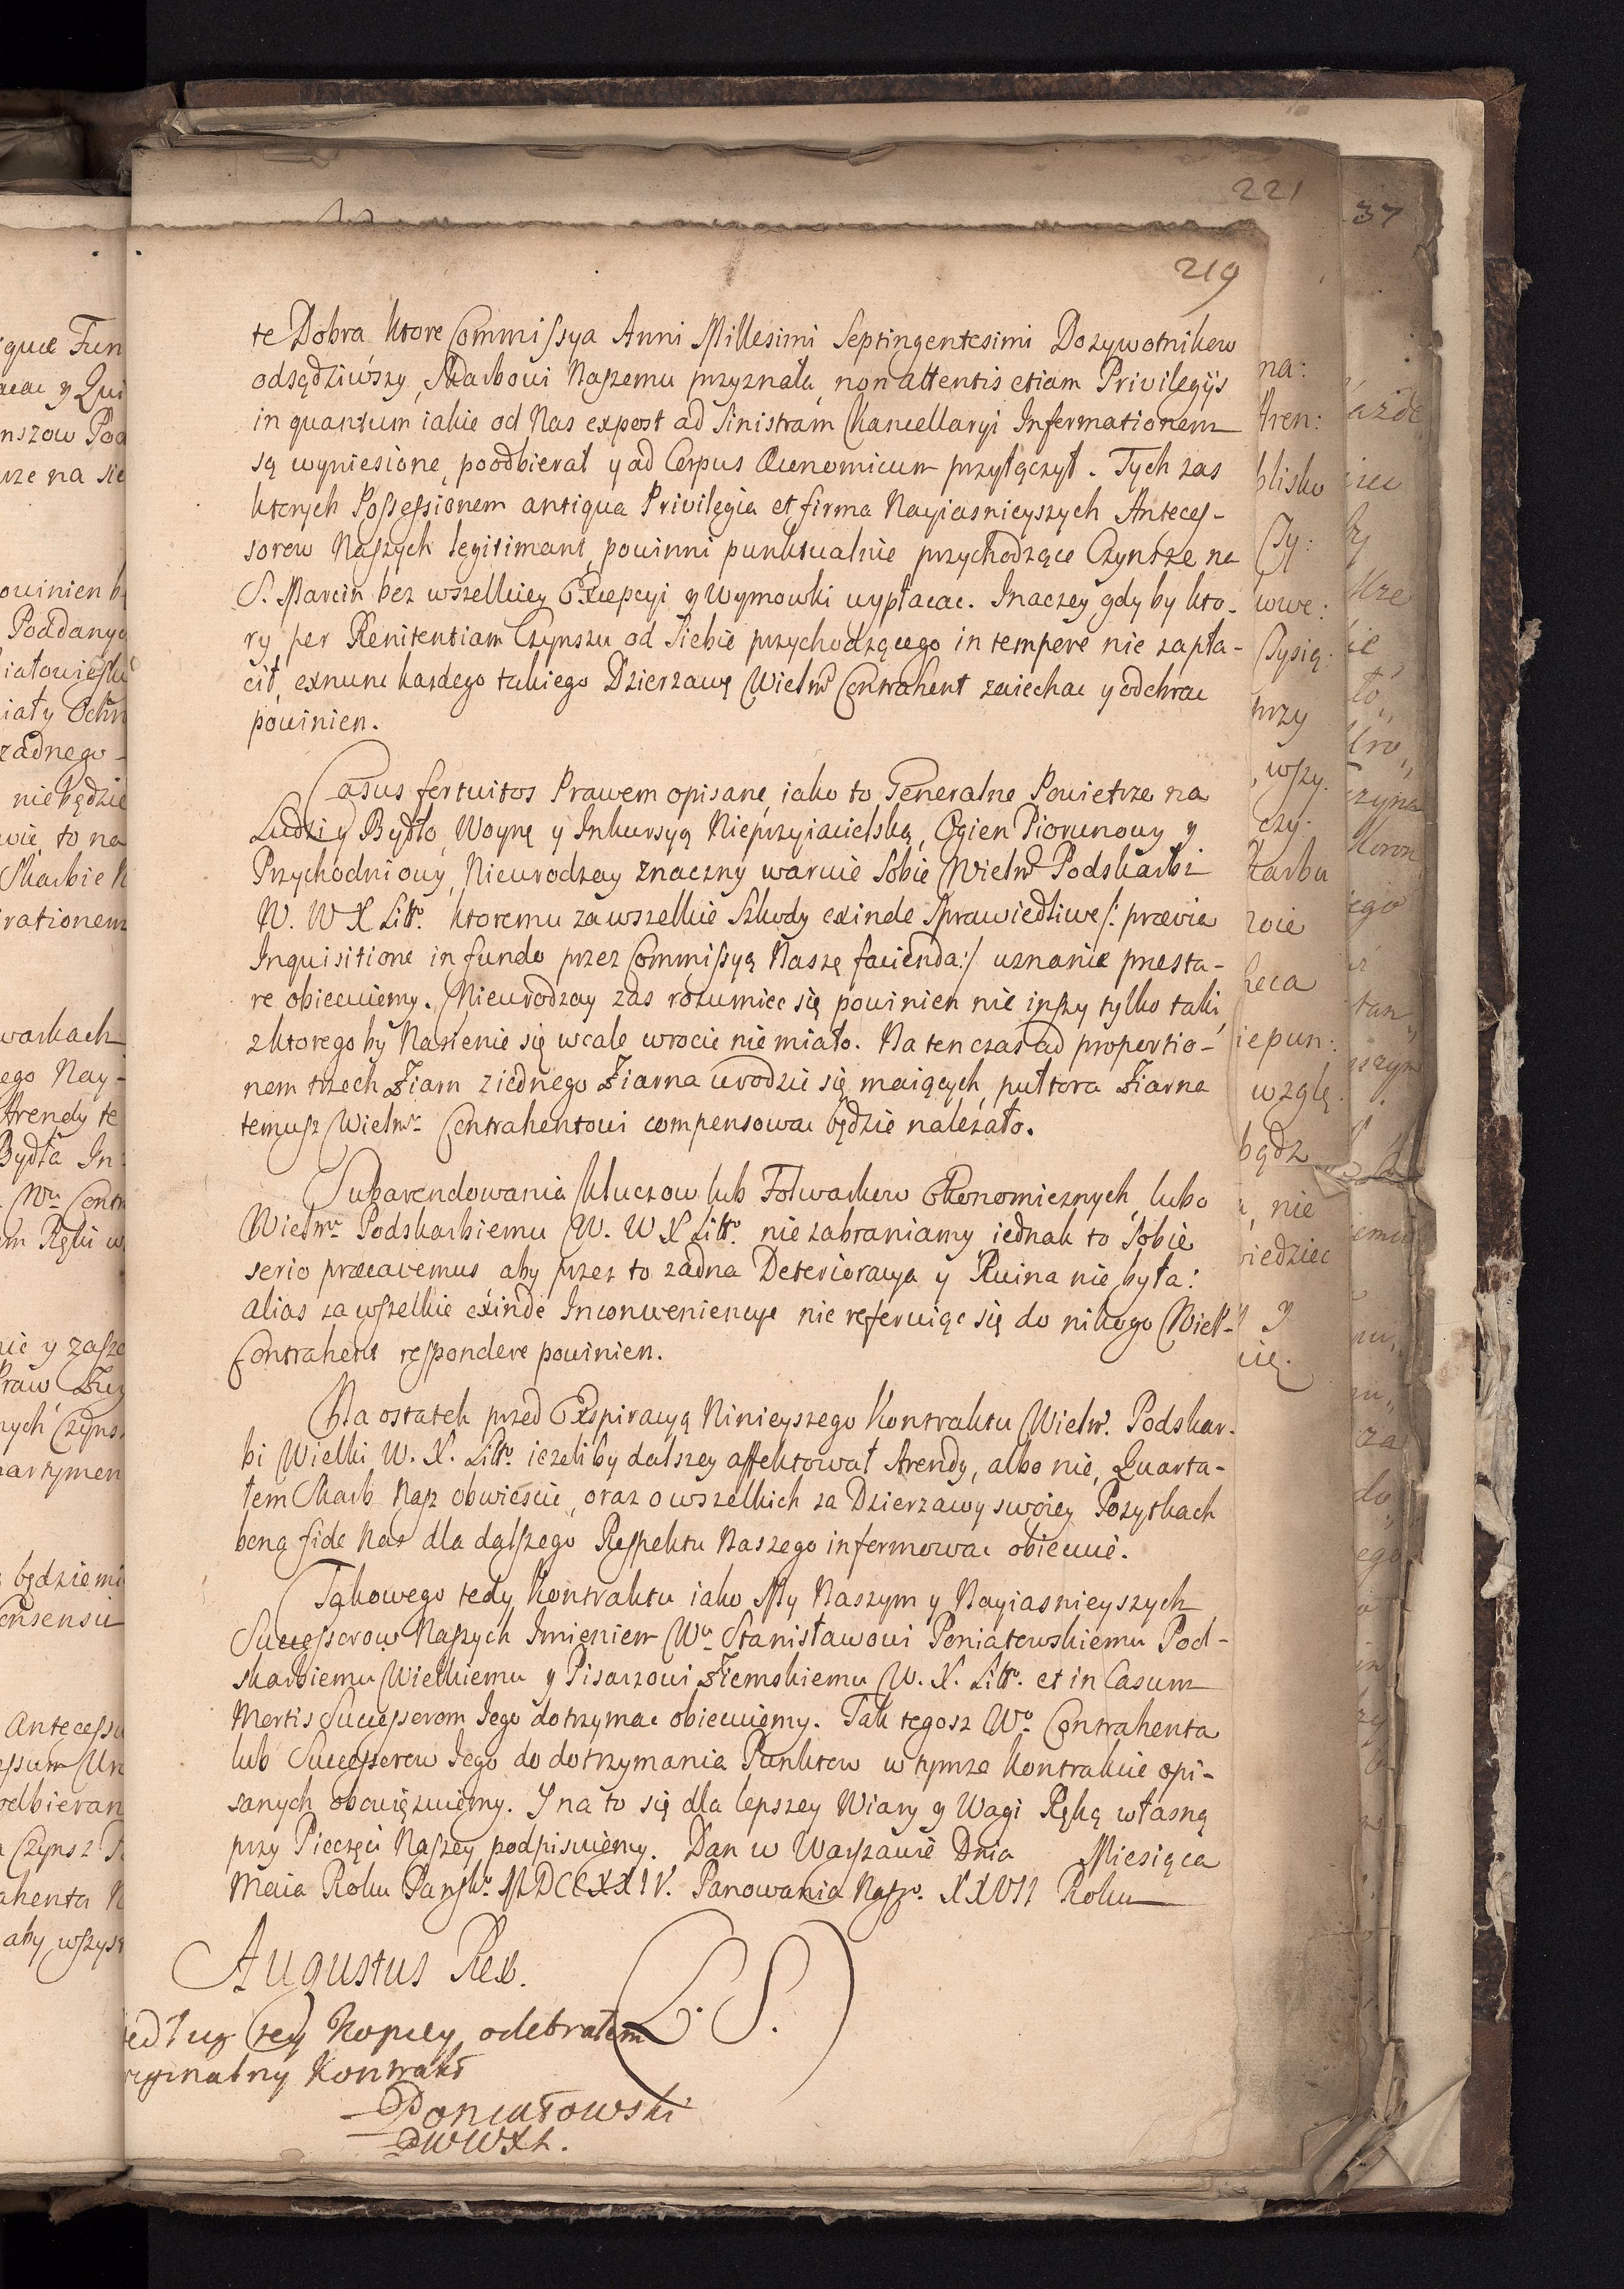 221
37
219
te Dobra ktore Commissya Anni Millesimi Septingentesimi Dozywotnikow
odsądziwszy, Skarbowi Naszemu przyznała, non attentis etiam Privilegijs
in quantum iakie od Nas expost ad Sinistram Kancellaryi Informationem
są wyniesione, poodbierał y ad Corpus Œconomicum przyłączył. Tych zas
ktorych Possessionem antiqua Privilegia et firma Nayiasnieyszych Anteces-
sorow Naszych legitimant, powinni punktualnie przychodzące Czynsze na
S. Marcin bez wszelkiey Excepcyi y Wymowki wypłacac. Inaczey gdy by kto-
ry per Renitentiam Czynszu od Siebie przychodzącego in tempore nie zapła-
cił, exnunc kazdego takiego Dzierzawę Wielmo Contrahent zaiechac y odebrac
powinien.
Casus fortuitos Prawem opisane, iako to Generalne Powietrze na
Ludzi y Bydło, Woynę y Inkursyą Nieprzyiacielską, Ogien Piorunowy y
Przychodniowy, Nieurodzay znaczny waruie Sobie Wielmo Podskarbi
W. W X Litto. ktoremu za wszelkie Szkody exinde Sprawiedliwe /: prævia
Inquisitione in fundo przez Commissyą Naszę facienda :/ uznanie præsta-
re obiecuiemy. Nieurodzay zas rozumiec się powinien nie inszy tylko taki,
z ktorego by Nasienie się wcale wrocic nie miało. Na ten czas ad proportio-
nem trzech Ziarn z iednego Ziarna urodzic się maiących, pułtora Ziarna
temusz Wielmu Contrahentowi compensowac będzie nalezało.
Subarendowania Kluczow lub Folwarkow Ekonomicznych, lubo
Wielmu Podskarbiemu W. W X Litto. nie zabraniamy, iednak to Sobie
serio præcavemus aby przez to zadna Deterioracya y Ruina nie była:
alias za wszelkie exinde Inconveniencye nie referuiąc się do nikogo Wielm
Contrahent respondere powinien.
Na ostatek przed Expiracyą Ninieyszego Kontraktu Wielm. Podskar-
bi Wielki W. X. Litto. iezeli by dalszey affektował Arendy, albo nie, Quarta-
łem Skarb Nasz obwiescic, oraz o wszelkich za Dzierzawy swoiey Pozytkach
bona fide Nas dla dalszego Respektu Naszego informowac obiecuie.
Takowego tedy Kontraktu iako My Naszym y Nayiasnieyszych
Successorow Naszych Imieniem Wu Stanisławowi Poniatowskiemu Pod-
skarbiemu Wielkiemu y Pisarzowi Ziemskiemu W. X. Litto. et in Casum
Mortis Successorom Jego dotrzymac obiecuiemy. Tak tegosz Wo Contrahenta
lub Successorow Jego do dotrzymania Punktow w tymze Kontrakcie opi-
sanych obowięzuiemy. Y na to się dla lepszey Wiary y Wagi Ręką własną
przy Pieczęci Naszey podpisuiemy. Dan w Warszawie Dnia Miesiąca
Maia Roku Pansko. MDCCXXIV. Panowania Naszo. XXVII Roku
Augustus Rex.
(L. S.)
edług tey Kopiey odebrałem
riginalny Kontrakt
Poniatowski
PWWXL.